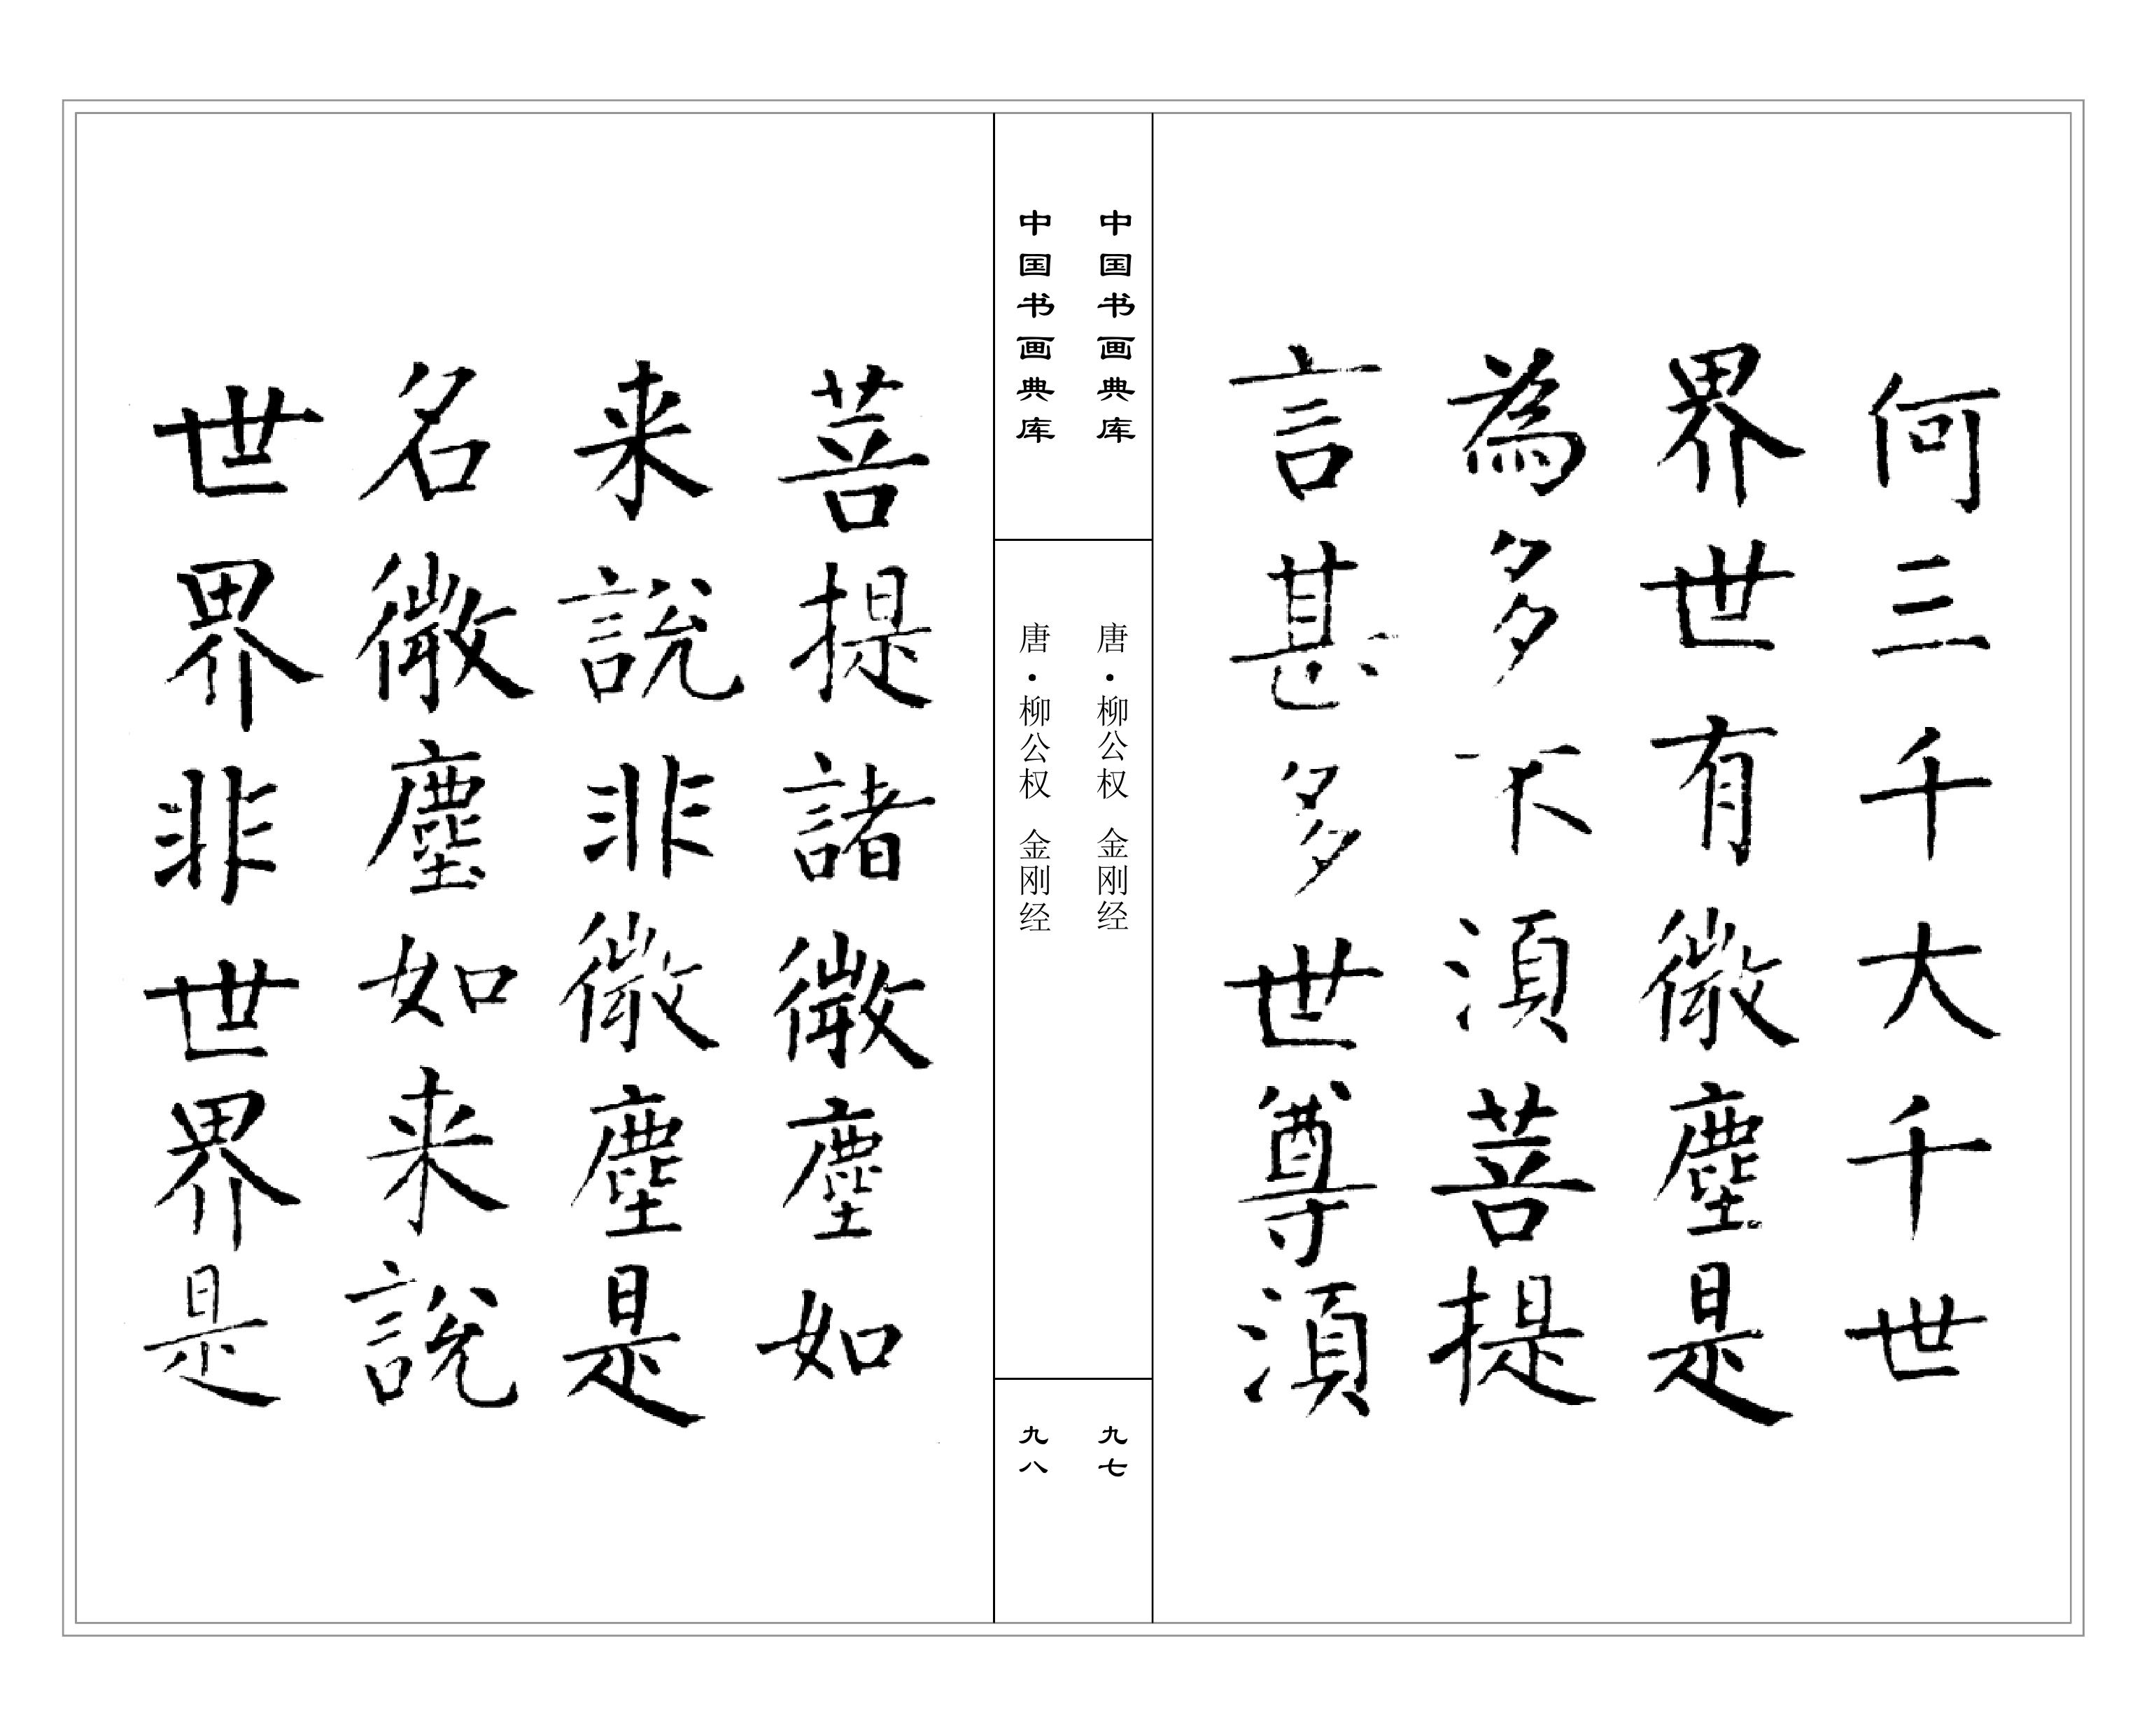 何三千大千世
界世有微塵是
為多不湏菩提
言甚多世尊湏
中国书画典库
唐·柳公权 金刚经
九七
中国书画典库
唐·柳公权 金刚经
九八
菩提諸微塵如
来說非微塵是
名微塵如来說
世界非世界是